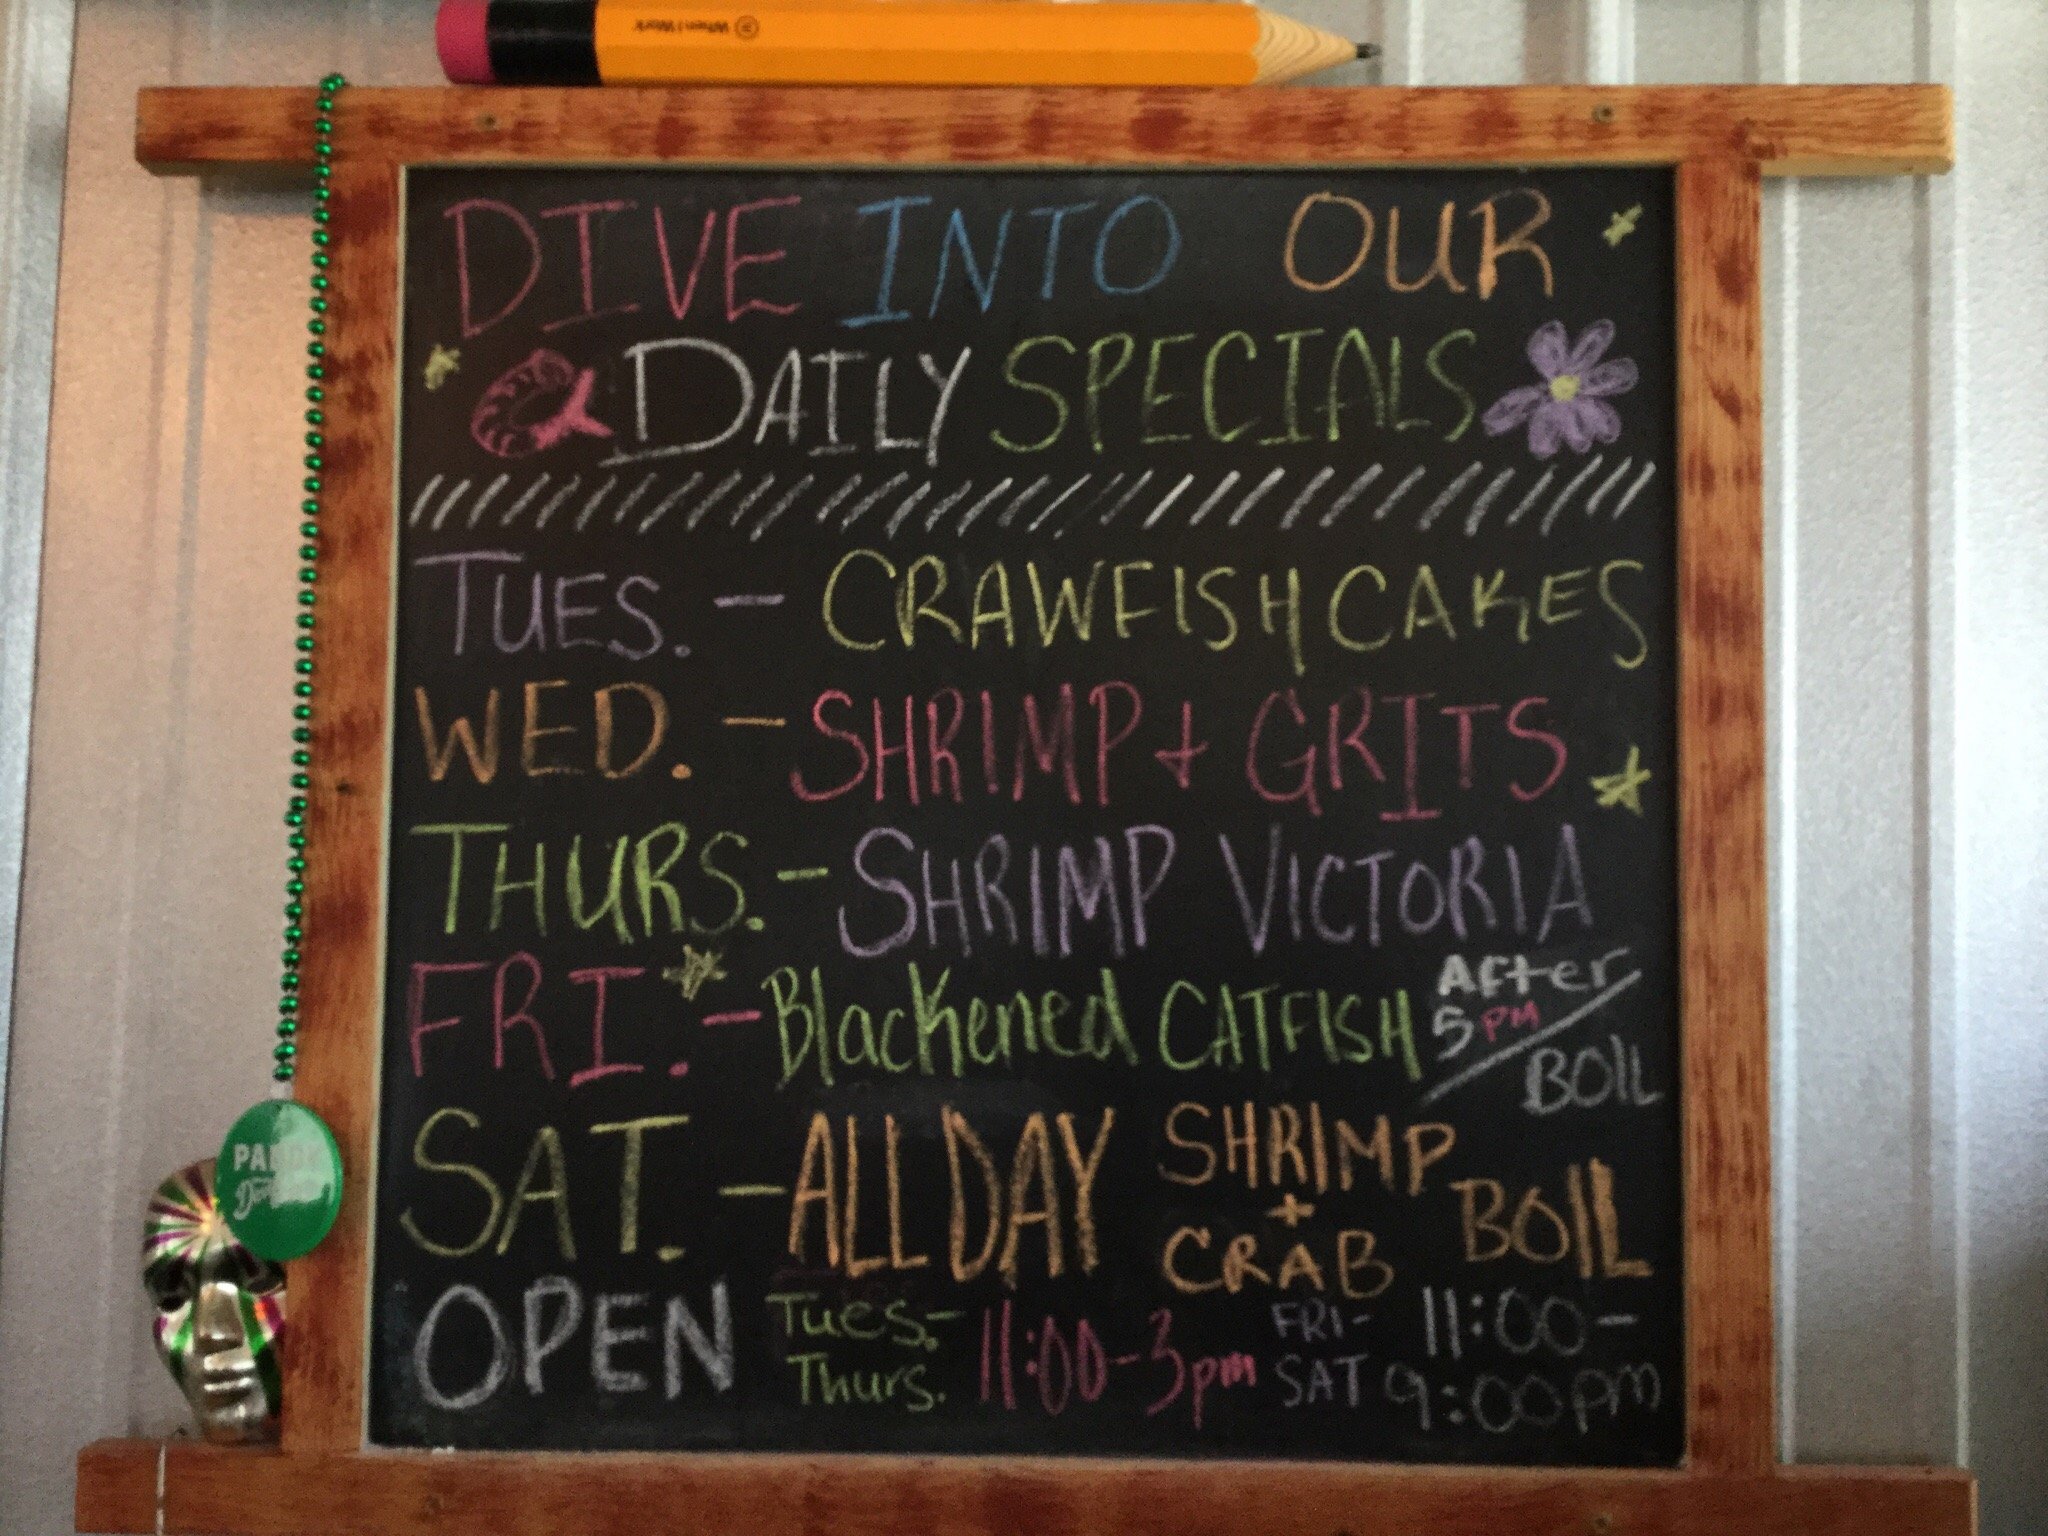 When I Work
DIVE INTO OUR
DAILY SPECIALS
TUES. - CRAWFISH CAKES
WED. - SHRIMP + GRITS
THURS. - SHRIMP VICTORIA
FRI. - Blackened CATFISH After 5PM / BOIL
SAT. - ALL DAY SHRIMP + CRAB BOIL
OPEN Tues. - Thurs. 11:00-3pm FRI- SAT 11:00- 9:00pm